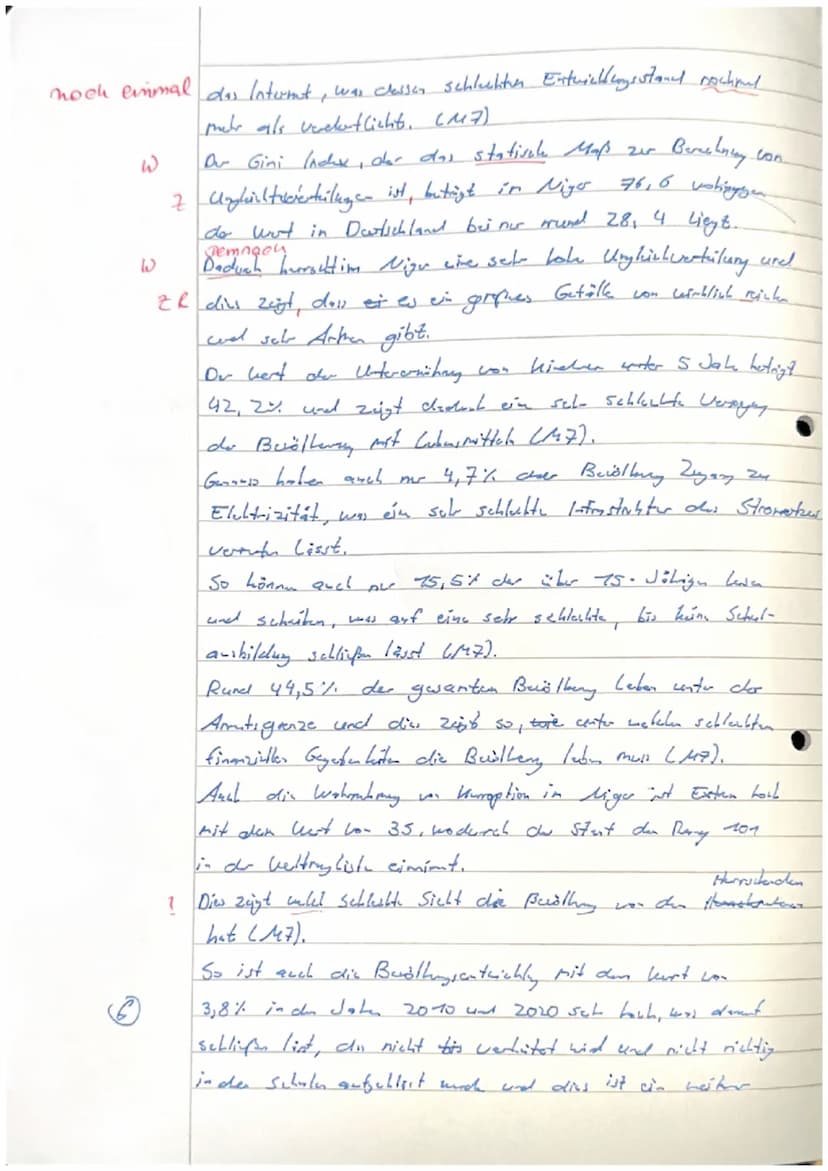 noch einmal das Internet, was dessen schlechten Entwicklungsstand nochmal
mehr als verdeutlicht. (M7)
W Der Gini Index, der das statische Maß zur Berechnung von
Z Ungleichverteilungen ist, beträgt in Niger 76,6 wohingegen
der Wert in Deutschland bei nur rund 28,4 liegt.
Demnach
W Daduch herrscht im Niger eine sehr hohe Ungleichverteilung und
Z R dies zeigt, dass es ein großes Gefälle von wirklich reichen
und sehr Armen gibt.
Der Wert der Unterernährung von Kindern unter 5 Jahre beträgt
42,2% und zeigt dadurch ein sehr schlechte Versorgung
der Bevölkerung mit Lebensmitteln (M7).
Genauso haben auch nur 4,7% der Bevölkerung Zugang zu
Elektrizität, was ein sehr schlechte Infrastruktur des Stromnetzes
vermuten lässt.
So können auch nur 15,5% der über 15-Jährigen lesen
und schreiben, was auf eine sehr schlechte, bis keine Schul-
ausbildung schließen lässt (M7).
Rund 44,5% der gesamten Bevölkerung leben unter der
Armutsgrenze und dies zeigt so, unter welchen schlechten
finanziellen Gegebenheiten die Bevölkerung leben muss (M7).
Auch die Wahrnehmung von Korruption im Niger ist Extrem hoch
mit dem Wert von 35, wodurch der Staat den Rang 101
in der Weltrangliste einnimmt.
Herrschenden
! Dies zeigt welch schlechte Sicht die Bevölkerung von den
hat (M7).
So ist auch die Bevölkerungsentwicklung mit dem Wert von
6 3,8% in den Jahren 2010 und 2020 sehr hoch, was darauf
schließen lässt, das nicht verhütet wird und nicht richtig
in den Schulen aufgeklärt wurde und dies ist ein weiter